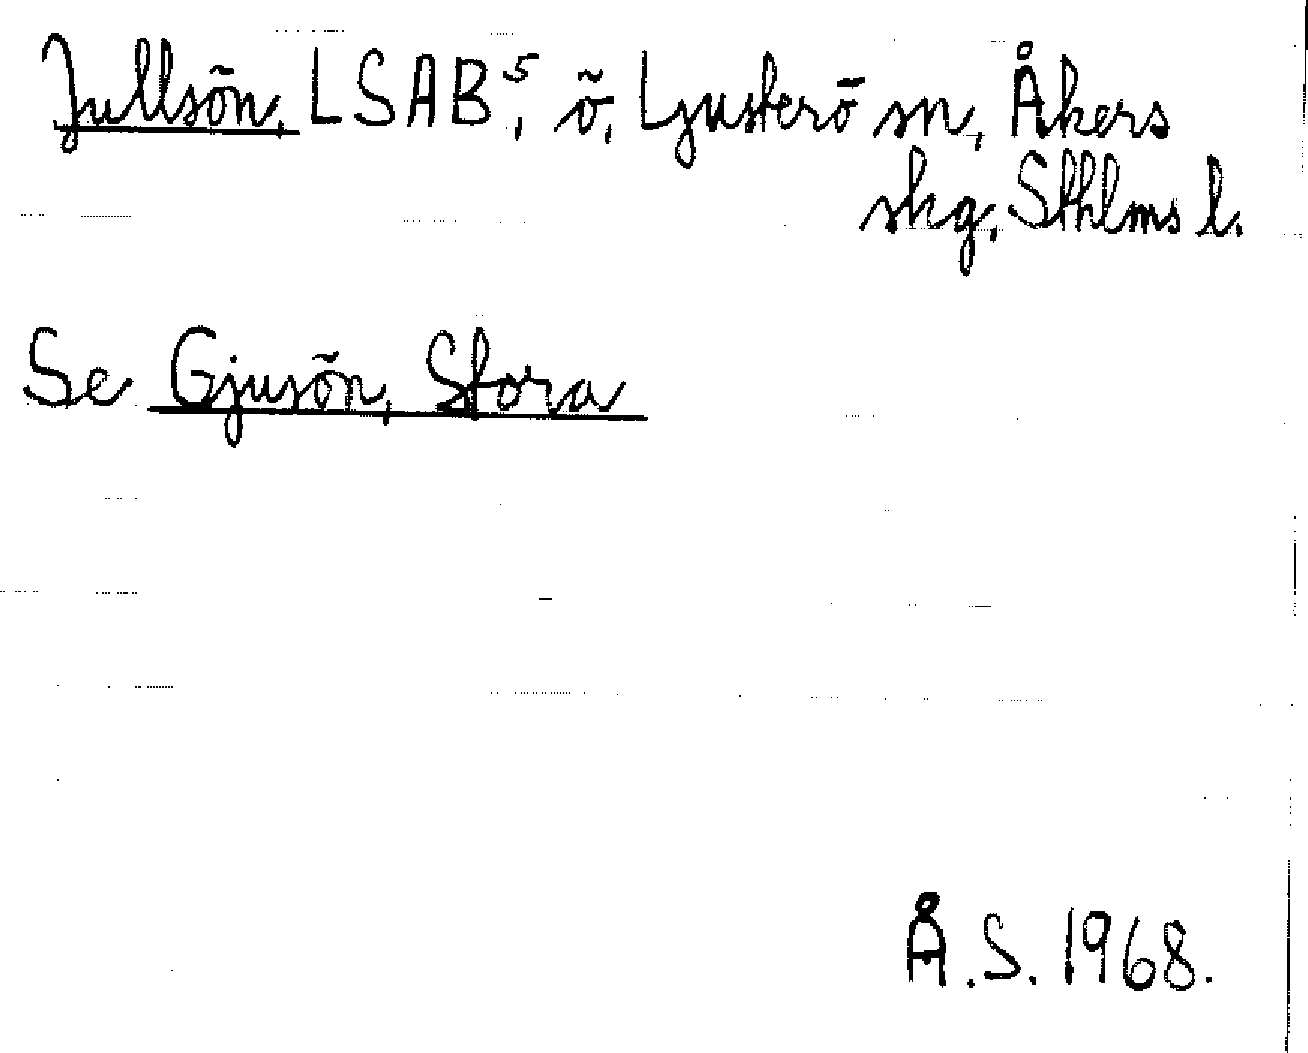 Jullsön, LSAB⁵, ö, Ljusterö sn, Åkers
skg, Sthlms l.
Se Gjusön, Stora
Å.S. 1968.